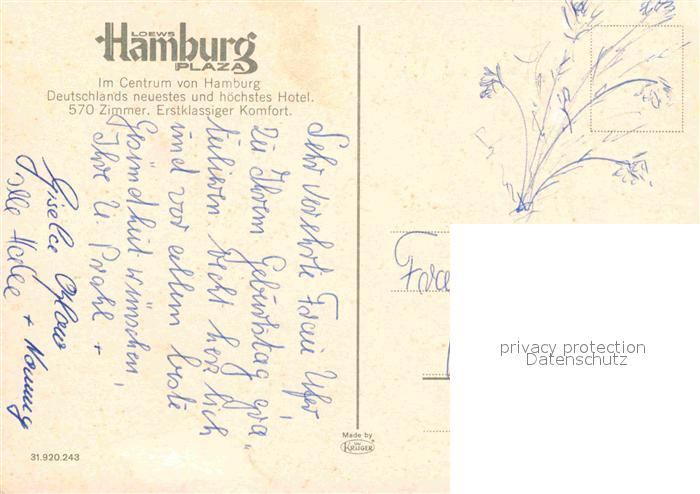 LOEWS
Hamburg
PLAZA
Im Centrum von Hamburg
Deutschlands neuestes und höchstes Hotel.
570 Zimmer. Erstklassiger Komfort.
Sehr verehrte Frau
zu Ihrem Geburtstag gra„
tulieren recht herzlich
und vor allem beste
Gesundheit wünschen
Ihre U. Prahl +
Gisela
+
Frau
privacy protection
Datenschutz
Made by
KRÜGER
31.920.243